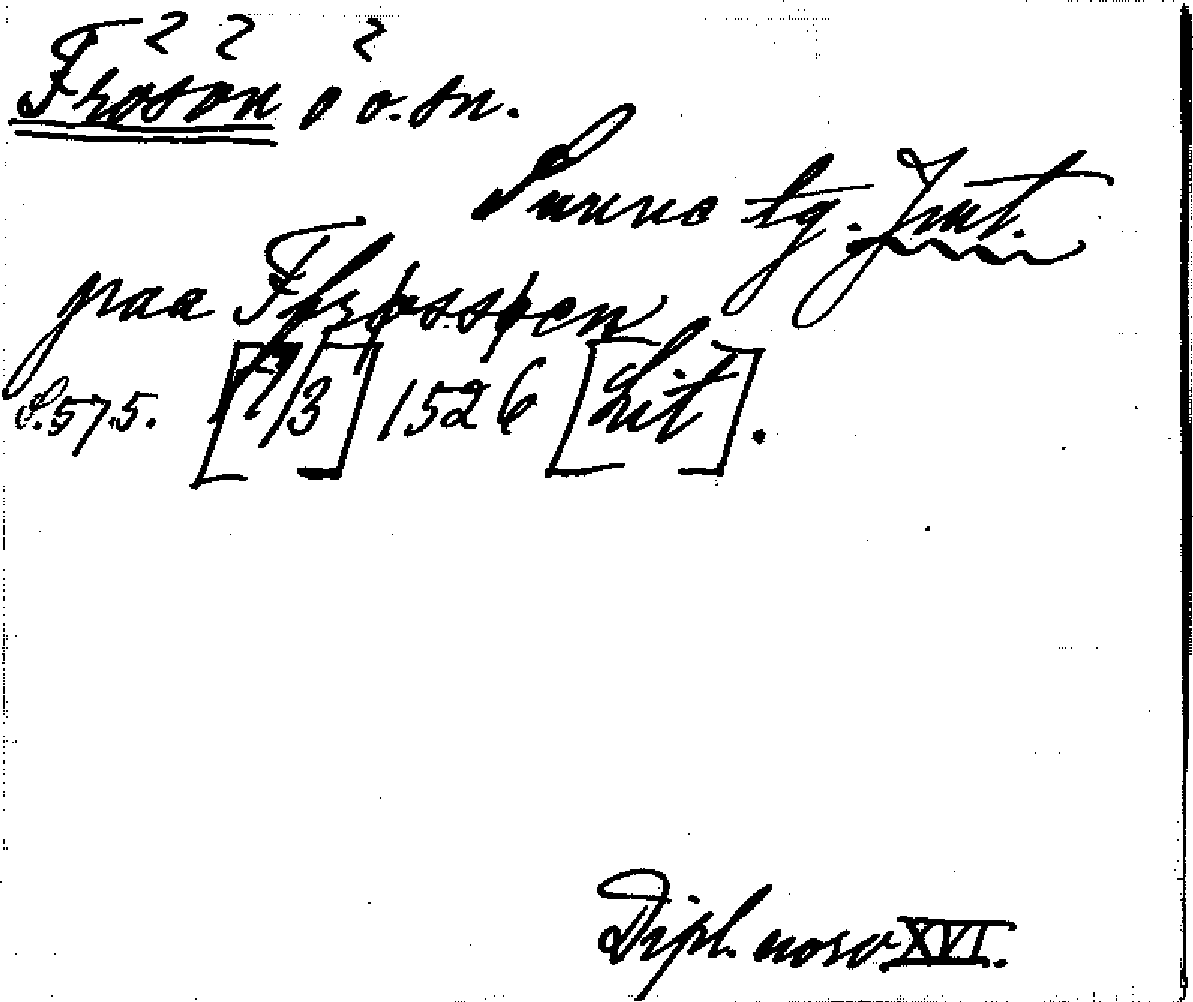 Frösön ö o. sn.
Sunne tg. Jmt.
paa Fhrøssøen
S. 575. [7/3] 1526 [Lit].
Dipl. norv XVI.